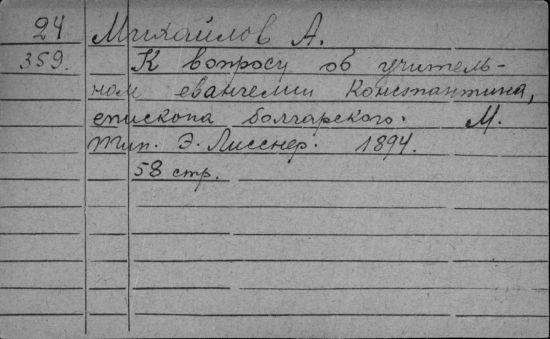 24 Михайлов А.
359. К вопросу об учитель-
ном евангелии Константина,
епископа болгарского. М.
Тип. Э. Лисснер. 1894.
58 стр.